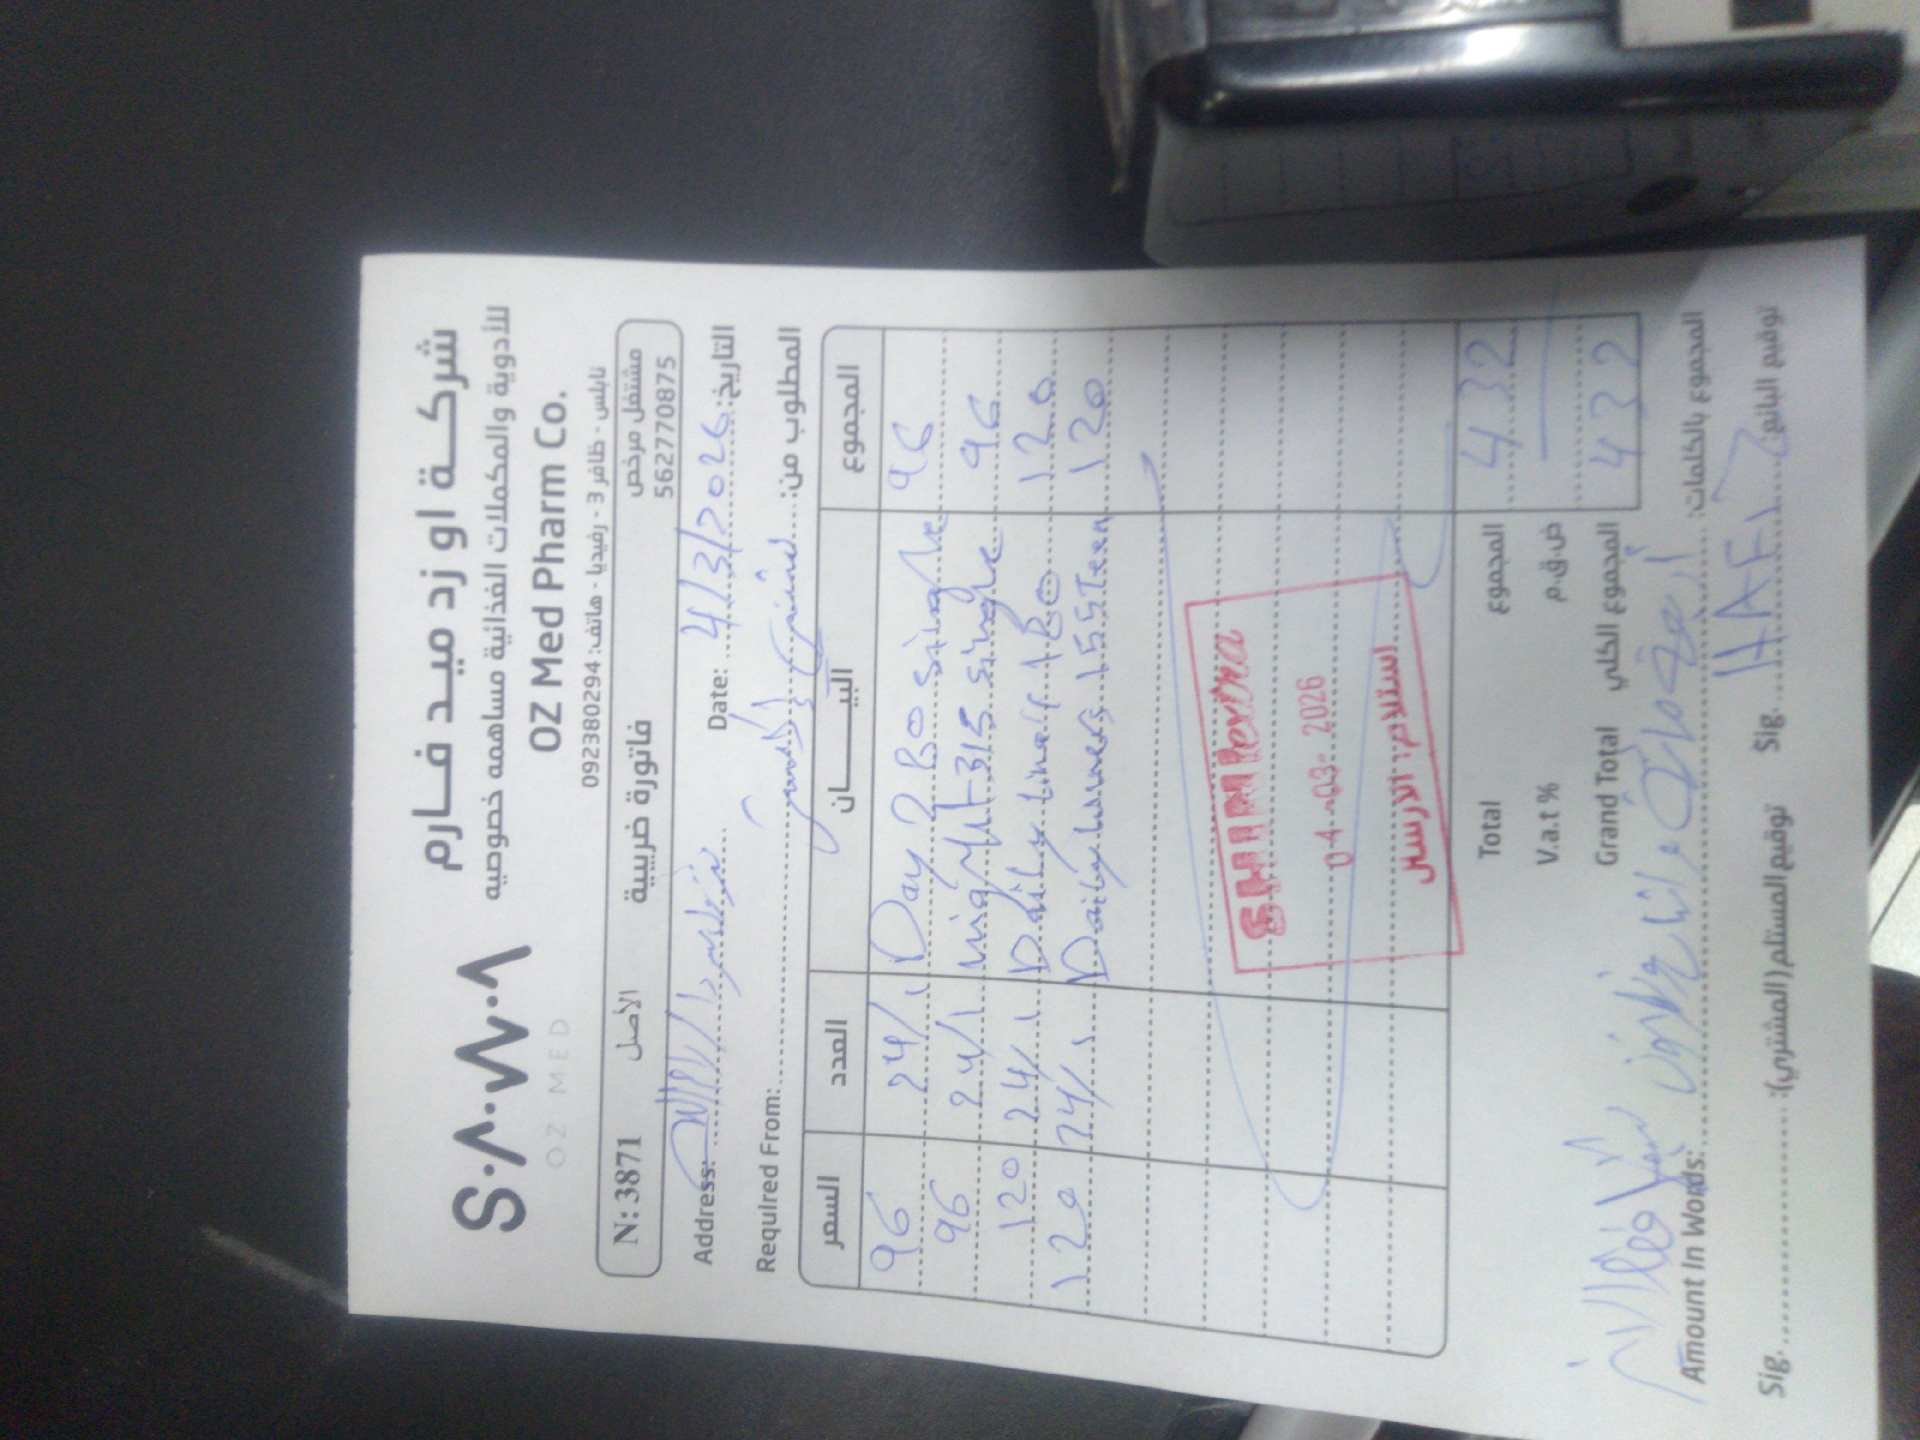 شركة او زد ميد فارم
للأدوية والمكملات الغذائية مساهمه خصوصيه
OZ Med Pharm Co.
S.A.W.A
OZ MED
نابلس - ظافر 3 - رفيديا - هاتف: 092380294
N: 3871 الأصل فاتورة ضريبية مشتغل مرخص
562770875
Address: Date: 4/3/2026 التاريخ:
Required From: المطلوب من:
السعر العدد البيـــــان المجموع
96 24/1 Day 280 single 96
96 24/1 night 315 single 96
120 24/1 Daily 180 120
120 24/1 Daily 155 Teen 120
04-03-2026
استلام: الارسن
Total المجموع 432
V.a.t % ض.ق.م
Grand Total المجموع الكلي 432
أربعمائة اثنان وثلاثون شيكل فقط
Amount In Words: المجموع بالكلمات:
Sig. توقيع المستلم (المشتري): Sig. توقيع البائع: